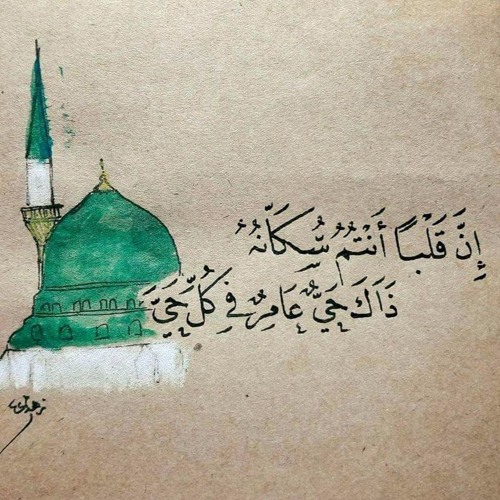 إِنَّ قَلْبًا أَنْتُمُ سُّكَّانَهُ
ذَاكَ حَيٌّ عَامِرٌ فِي كُلِّ حَيَّ